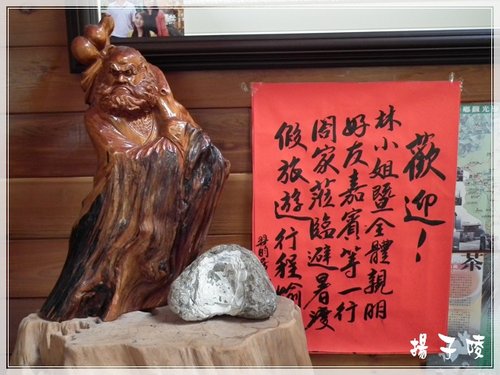 歡迎!
林小姐暨全體親朋
好友嘉賓等一行
闔家蒞臨避暑渡
假旅遊行程愉
茶
揚子陵